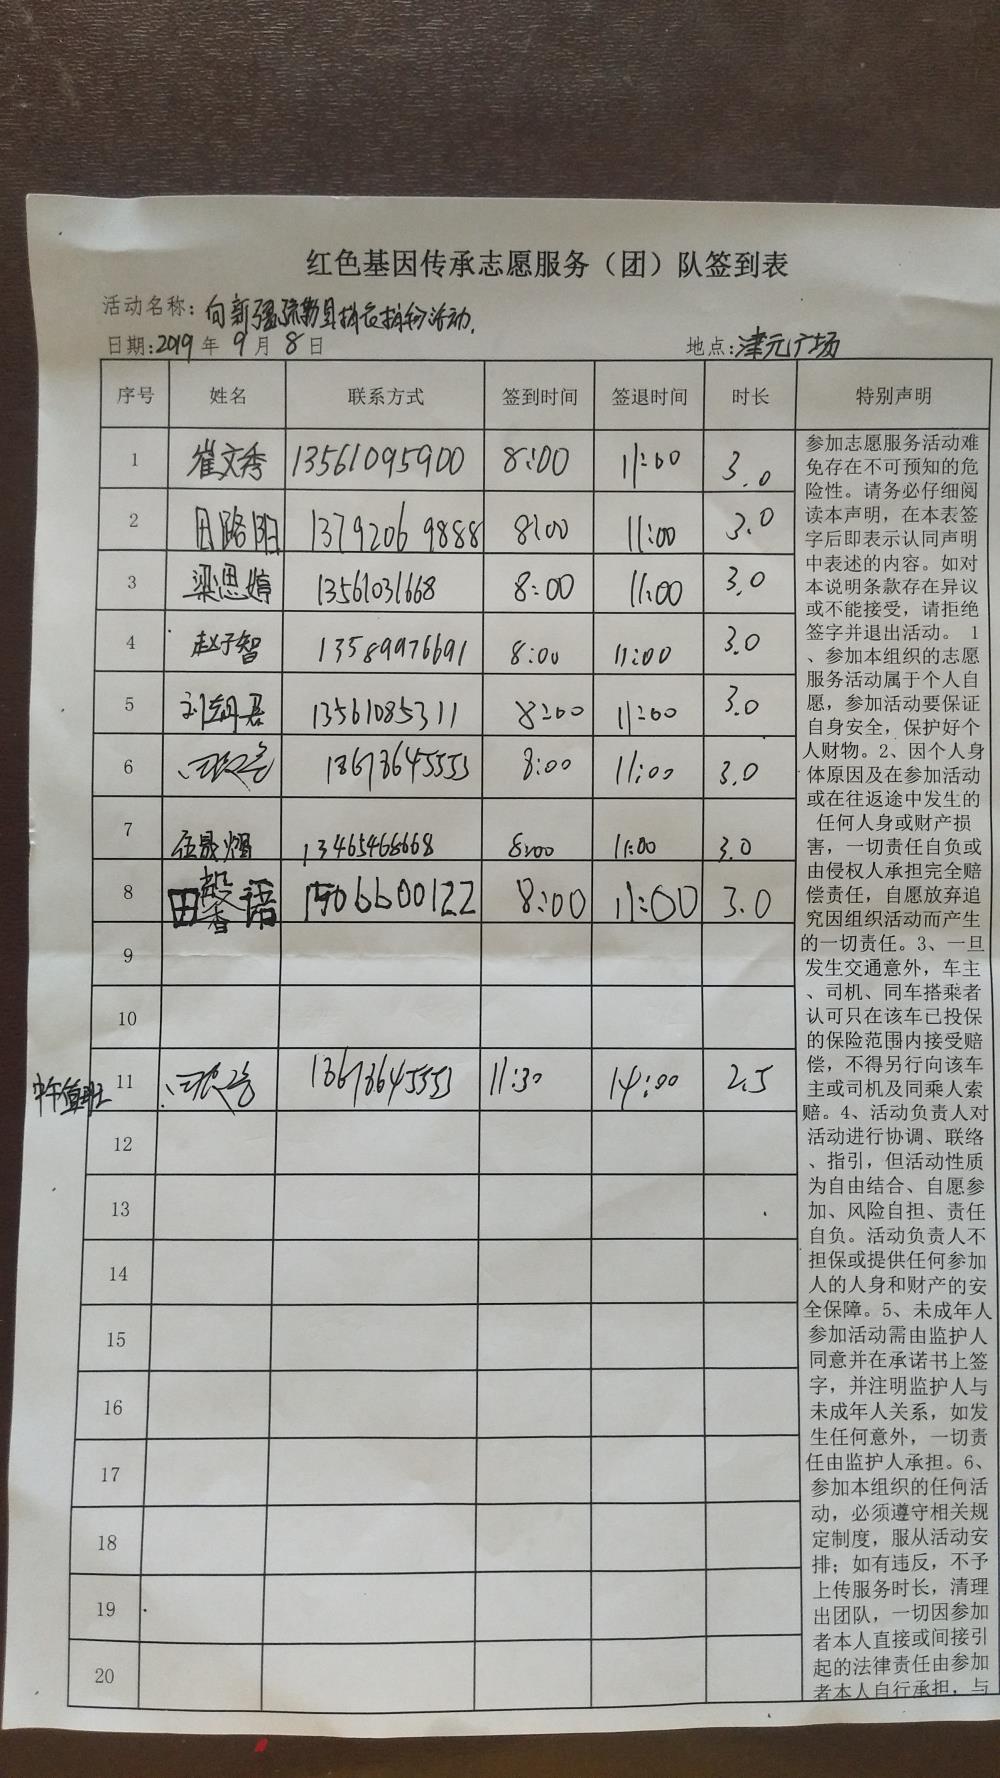 红色基因传承志愿服务（团）队签到表
活动名称：向新疆疏勒县捐衣捐物活动.
日期:2019年9月8日 地点:津元广场
序号 姓名 联系方式 签到时间 签退时间 时长 特别声明
1 崔文秀 13561095900 8:00 11:00 3.0
2 田路阳 13792069888 8:00 11:00 3.0
3 梁思婷 13561031668 8:00 11:00 3.0
4 赵子智 13589976691 8:00 11:00 3.0
5 刘朝君 13561085311 8:00 11:00 3.0
6 13673645553 8:00 11:00 3.0
7 伍晟熠 13465468668 8:00 11:00 3.0
8 田馨语 8:00 11:00 3.0
9
10
中午值班 11 13673645553 11:30 14:00 2.5
12
13
14
15
16
17
18
19
20
参加志愿服务活动难
免存在不可预知的危
险性。请务必仔细阅
读本声明，在本表签
字后即表示认同声明
中表述的内容。如对
本说明条款存在异议
或不能接受，请拒绝
签字并退出活动。 1
、参加本组织的志愿
服务活动属于个人自
愿，参加活动要保证
自身安全，保护好个
人财物。2、因个人身
体原因及在参加活动
或在往返途中发生的
任何人身或财产损
害，一切责任自负或
由侵权人承担完全赔
偿责任，自愿放弃追
究因组织活动而产生
的一切责任。3、一旦
发生交通意外，车主
、司机、同车搭乘者
认可只在该车已投保
的保险范围内接受赔
偿，不得另行向该车
主或司机及同乘人索
赔。4、活动负责人对
活动进行协调、联络
、指引，但活动性质
为自由结合、自愿参
加、风险自担、责任
自负。活动负责人不
担保或提供任何参加
人的人身和财产的安
全保障。5、未成年人
参加活动需由监护人
同意并在承诺书上签
字，并注明监护人与
未成年人关系，如发
生任何意外，一切责
任由监护人承担。6、
参加本组织的任何活
动，必须遵守相关规
定制度，服从活动安
排；如有违反，不予
上传服务时长，清理
出团队，一切因参加
者本人直接或间接引
起的法律责任由参加
者本人自行承担，与